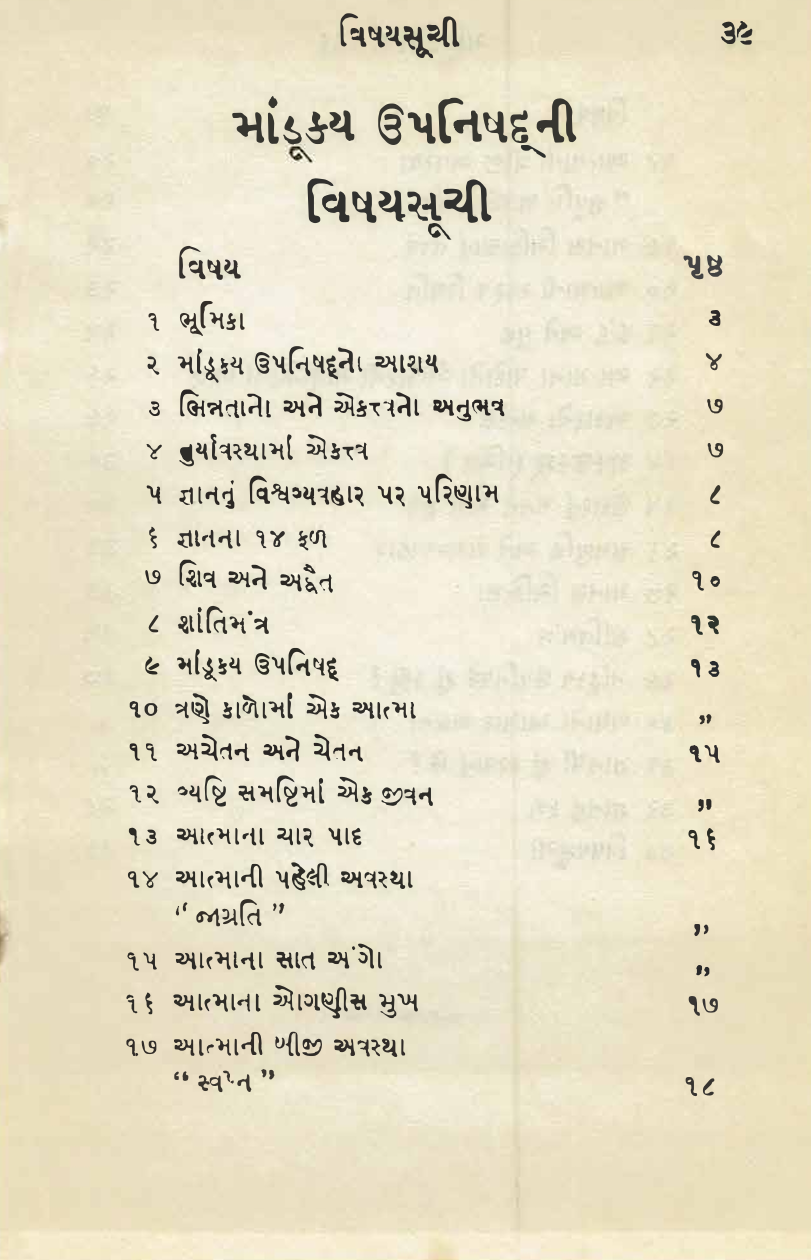 વિષયસૂચી ૩૯
માંડૂક્ય ઉપનિષદ્‌ની
વિષયસૂચી
વિષય પૃષ્ઠ
૧ ભૂમિકા ૩
૨ માંડૂક્ય ઉપનિષદ્‌નો આશય ૪
૩ ભિન્નતાનો અને એકત્ત્વનો અનુભવ ૭
૪ તુર્યાવસ્થામાં એકત્ત્વ ૭
૫ જ્ઞાનનું વિશ્વવ્યવહાર પર પરિણામ ૮
૬ જ્ઞાનના ૧૪ ફળ ૮
૭ શિવ અને અદ્વૈત ૧૦
૮ શાંતિમંત્ર ૧૨
૯ માંડૂક્ય ઉપનિષદ્ ૧૩
૧૦ ત્રણે કાળોમાં એક આત્મા ”
૧૧ અચેતન અને ચેતન ૧૫
૧૨ વ્યષ્ટિ સમષ્ટિમાં એક જીવન ”
૧૩ આત્માના ચાર પાદ ૧૬
૧૪ આત્માની પહેલી અવસ્થા
“ જાગ્રતિ ” ”
૧૫ આત્માના સાત અંગો ”
૧૬ આત્માના ઓગણીસ મુખ ૧૭
૧૭ આત્માની બીજી અવસ્થા
“ સ્વપ્ન ” ૧૮